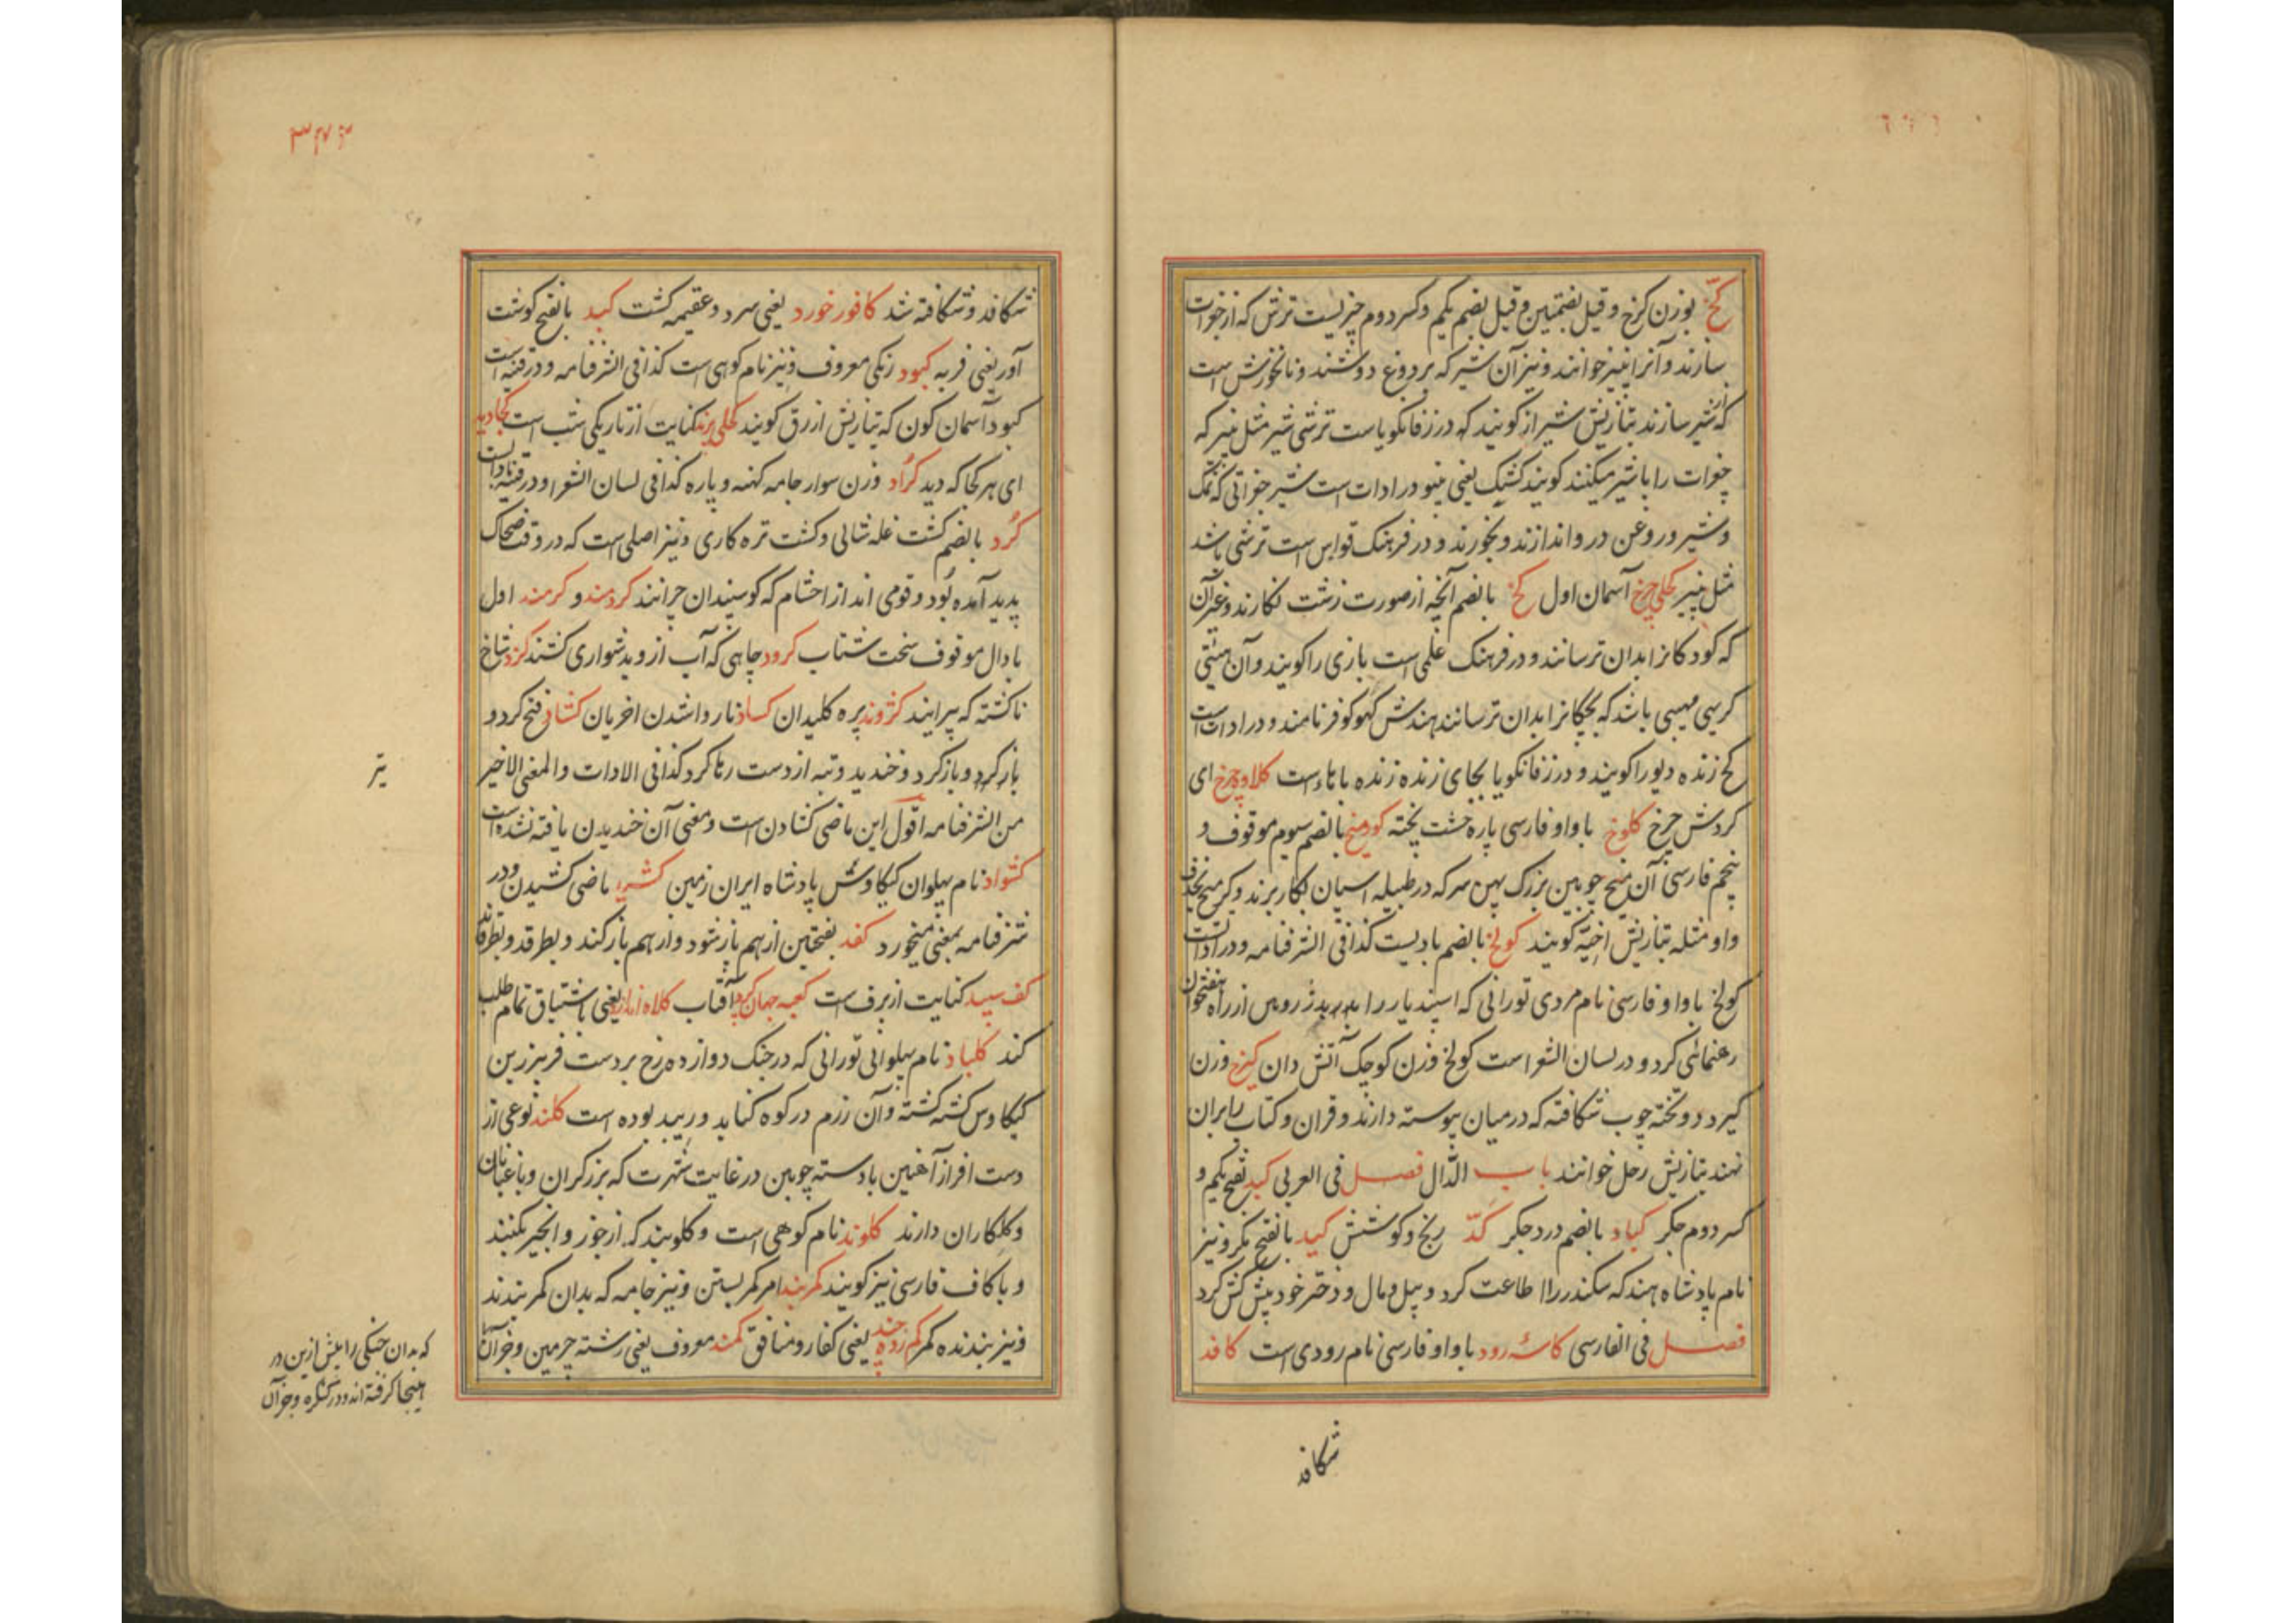 کخ بوزن کرخ و قیل بضمتین و قیل بضم یکم و کسر دوم چیزیست ترش که از جغرات
سازند و آنرا پنیر خوانند و نیز آن شیر که بر دوغ دوشند و نانخورش است
که از شیر سازند بتازیش شیراز کویند که در زفانکویاست ترشی شیر مثل پنیر که
جغرات را با شیر میکنند کویند کشک یعنی پینو در ادات است شیر جغراتی که نمک
و شیر و روغن درو اندازند و بخورند و در فرهنک قواس است ترشی باشد
مثل پنیر کحلی چرخ آسمان اول کخ بالضم آنچه از صورت زشت نکارند و غیر آن
که کودکانرا بدان ترسانند و در فرهنک علمی است بازی را کویند و آن هیئتی
کریهی مهیبی باشد که بچکانرا بدان ترسانند هندش کهوکو فر نامند و در ادات است
کخ زنده دیو را کویند و در زفانکویا بجای زنده زنده با تاء است کلاوه چرخ ای
کردش چرخ کلوخ با واو فارسی پارهٔ خشت پخته کورمیخ بالضم سیوم موقوف و
پنجم فارسی آن میخ چوبین بزرک پهن سر که در طبیله اسپان بکار برند و کرمیخ بحذف
واو مثله بتازیش اخیّه کویند کولخ بالضم بادیست کذا فی الشرفنامه و در ادات است
کولخ با واو فارسی نام مردی تورانی که اسپندیار را بدر بدژ روین از راه هفتخوان
رهنمائی کرد و در لسان الشعرا است کولخ وزن کوچک آتش دان کیرخ وزن
کیرد دو تخته چوب شکافته که در میان پیوسته دارند و قران و کتاب را بران
نهند بتازیش رحل خوانند باب الدّال فصل فی العربی کبد بفتح یکم و
کسر دوم جکر کباد بالضم درد جکر کدّ رنج و کوشش کید بالفتح مکر و نیز
نام پادشاه هند که سکندر را اطاعت کرد و پیل و مال و دختر خود پیش کش کرد
فصل فی الفارسی کاسه رود با واو فارسی نام رودی است کافد
شکافد
۳۷۳
شکافد و شکافته شد کافور خورد یعنی سرد و عقیمه کشت کبد بالفتح کوشت
آور یعنی فربه کبود رنکی معروف و نیز نام کوهی است کذا فی الشرفنامه و در قنیه است
کبود آسمان کون که بتازیش ازرق کویند کحلی پرند کنایت از تاریکی شب است کجا دید
ای هر کجا که دید کراد وزن سوار جامه کهنه و پاره کذا فی لسان الشعرا و در قنیه
کرد بالضم کشت غله شالی و کشت تره کاری و نیز اصلی است که در وقت ضحاک
پدید آمده بود و قومی اند از احشام که کوسپندان چرانند کردمند و کرمند اول
با دال موقوف سخت شتاب کرود چاهی که آب ازو بدشواری کشند کزد شاخ
ناکشته که پیرایند کژوند پره کلیدان کساد ناروا شدن اخریان کشاد فتح کرد و
باز کرد و باز کرد و خندید و تیر از دست رها کرد کذا فی الادات و المعنی الاخیر
من الشرفنامه اقول این ماضی کشادن است و معنی آن خندیدن یافته نشده است
کشواد نام پهلوان کیکاوس پادشاه ایران زمین کشید ماضی کشیدن و در
شرفنامه بمعنی میخورد کفد بفتحتین از هم باز شود و از هم باز کند و بطرقد و بطرقاند
کف سپید کنایت از برف است کعبه جهان کرد آفتاب کلاه اندازد یعنی باشتیاق تمام طلب
کند کلباد نام پهلوانی تورانی که در جنک دوازده رخ بر دست فریبرز بن
کیکاوس کشته کشته و آن رزم در کوه کنابد و ریبد بوده است کلند نوعی از
دست افراز آهنین با دسته چوبین در غایت شهرت که بزرکران و باغبانان
و کلکاران دارند کلوند نام کوهی است و کلوبند که از جوز و انجیر کنند
و با کاف فارسی نیز کویند کمربند امر کمر بستن و نیز جامه که بدان کمر بندند
و نیز بندنده کمر کم زده چند یعنی کفار و منافق کمند معروف یعنی رشته چرمین و جز آن
تیر
که بدان جنکی را پیش ازین در
اینجا کرفته اند و در کنکره و جز آن